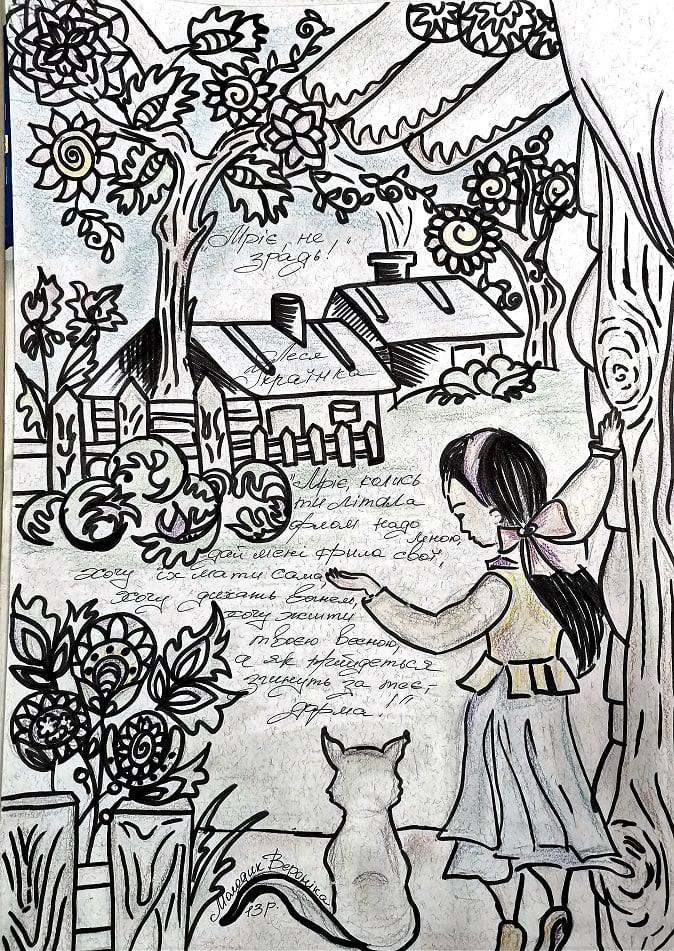 „Мріє, не
зрадь!"
Леся
Українка
"Мріє, колись
ти літала
орлом надо
мною,
дай мені крила свої,
хочу їх мати сама,
хочу дихать вогнем,
хочу жити
твоєю весною,
а як прийдеться
згинуть за теє,-
дарма!"
Молодик Вероніка
13 р.